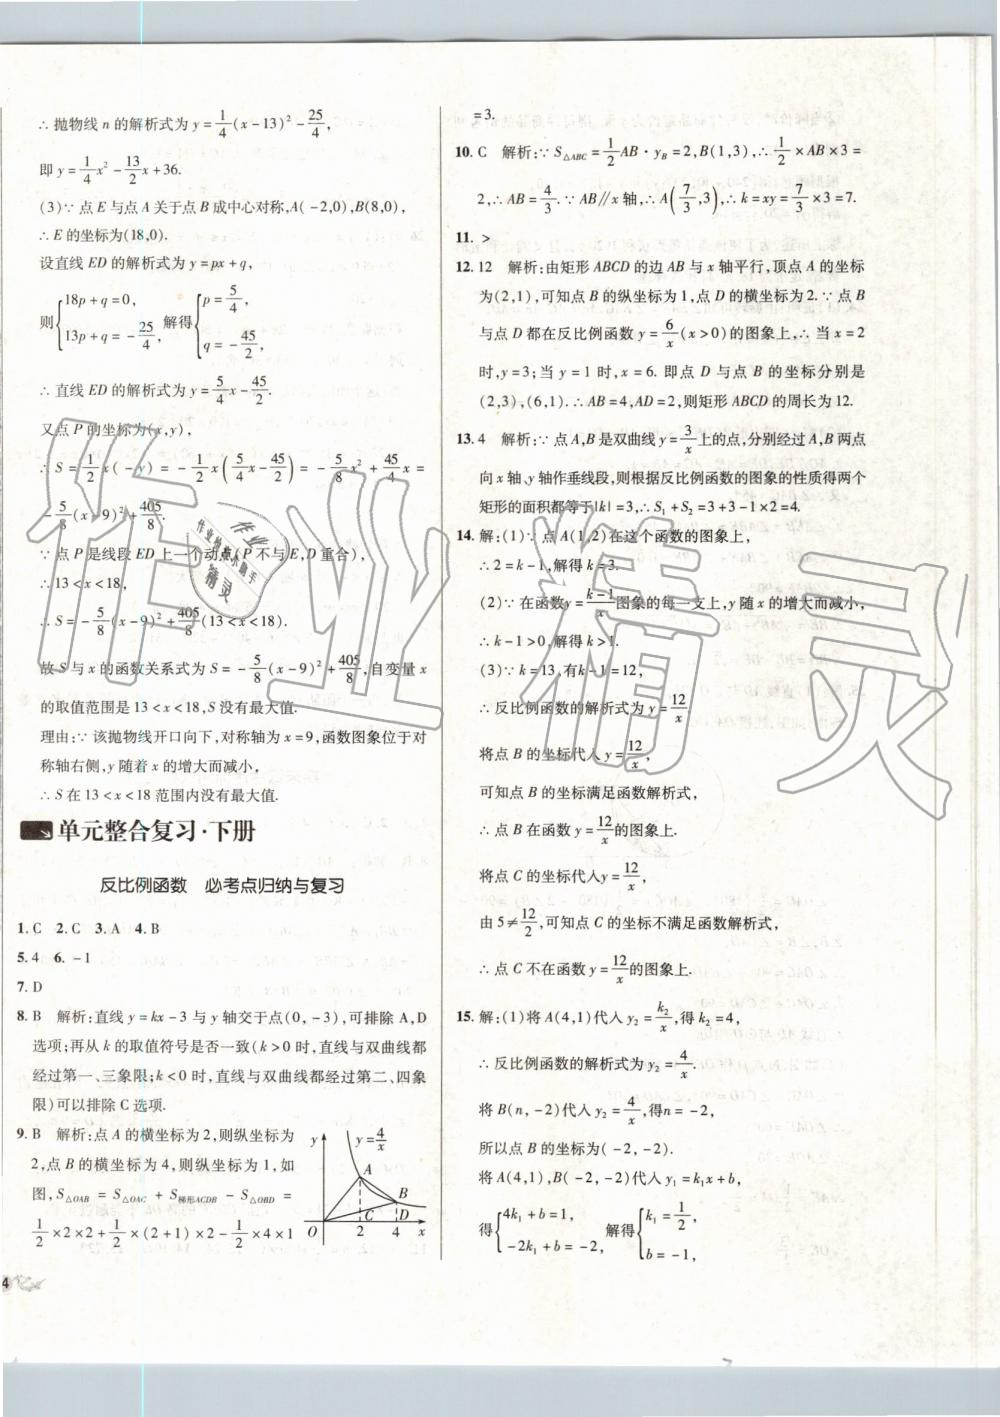 ∴ 抛物线 n 的解析式为 y=1/4(x-13)²-25/4,
即 y=1/4x²-13/2x+36.
(3)∵ 点 E 与点 A 关于点 B 成中心对称,A(-2,0),B(8,0),
∴ E 的坐标为(18,0).
设直线 ED 的解析式为 y=px+q,
则{18p+q=0, 13p+q=-25/4, 解得{p=5/4, q=-45/2,
∴ 直线 ED 的解析式为 y=5/4x-45/2.
又点 P 的坐标为(x,y),
∴ S=1/2x(-y)=-1/2x(5/4x-45/2)=-5/8x²+45/4x=
-5/8(x-9)²+405/8.
∵ 点 P 是线段 ED 上一个动点(P 不与 E,D 重合),
∴ 13<x<18,
∴ S=-5/8(x-9)²+405/8(13<x<18).
故 S 与 x 的函数关系式为 S=-5/8(x-9)²+405/8,自变量 x
的取值范围是 13<x<18,S 没有最大值.
理由:∵ 该抛物线开口向下,对称轴为 x=9,函数图象位于对
称轴右侧,y 随着 x 的增大而减小,
∴ S 在 13<x<18 范围内没有最大值.
单元整合复习·下册
反比例函数 必考点归纳与复习
1. C 2. C 3. A 4. B
5. 4 6. -1
7. D
8. B 解析:直线 y=kx-3 与 y 轴交于点(0,-3),可排除 A,D
选项;再从 k 的取值符号是否一致(k>0 时,直线与双曲线都
经过第一、三象限;k<0 时,直线与双曲线都经过第二、四象
限)可以排除 C 选项.
9. B 解析:点 A 的横坐标为 2,则纵坐标为
2,点 B 的横坐标为 4,则纵坐标为 1,如
图,S△OAB=S△OAC+S梯形ACDB-S△OBD=
1/2×2×2+1/2×(2+1)×2-1/2×4×1
y y=4/x
A
B
C D
O 2 4 x
4
=3.
10. C 解析:∵ S△ABC=1/2AB·yB=2,B(1,3),∴ 1/2×AB×3=
2,∴ AB=4/3. ∵ AB∥x 轴,∴ A(7/3,3),∴ k=xy=7/3×3=7.
11. >
12. 12 解析:由矩形 ABCD 的边 AB 与 x 轴平行,顶点 A 的坐标
为(2,1),可知点 B 的纵坐标为 1,点 D 的横坐标为 2.∵ 点 B
与点 D 都在反比例函数 y=6/x(x>0)的图象上,∴ 当 x=2
时,y=3;当 y=1 时,x=6. 即点 D 与点 B 的坐标分别是
(2,3),(6,1).∴ AB=4,AD=2,则矩形 ABCD 的周长为 12.
13. 4 解析:∵ 点 A,B 是双曲线 y=3/x上的点,分别经过 A,B 两点
向 x 轴、y 轴作垂线段,则根据反比例函数的图象的性质得两个
矩形的面积都等于|k|=3,∴ S1+S2=3+3-1×2=4.
14. 解:(1)∵ 点 A(1,2)在这个函数的图象上,
∴ 2=k-1,解得 k=3.
(2)∵ 在函数y=k-1/x图象的每一支上,y 随 x 的增大而减小,
∴ k-1>0,解得 k>1.
(3)∵ k=13,有 k-1=12,
∴ 反比例函数的解析式为 y=12/x.
将点 B 的坐标代入 y=12/x,
可知点 B 的坐标满足函数解析式,
∴ 点 B 在函数 y=12/x的图象上.
将点 C 的坐标代入y=12/x,
由 5≠12/2,可知点 C 的坐标不满足函数解析式,
∴ 点 C 不在函数 y=12/x的图象上.
15. 解:(1)将 A(4,1)代入 y2=k2/x,得 k2=4,
∴ 反比例函数的解析式为 y2=4/x.
将 B(n,-2)代入 y2=4/x,得n=-2,
所以点 B 的坐标为(-2,-2).
将 A(4,1),B(-2,-2)代入 y1=k1x+b,
得{4k1+b=1, -2k1+b=-2, 解得{k1=1/2, b=-1,
作业精灵